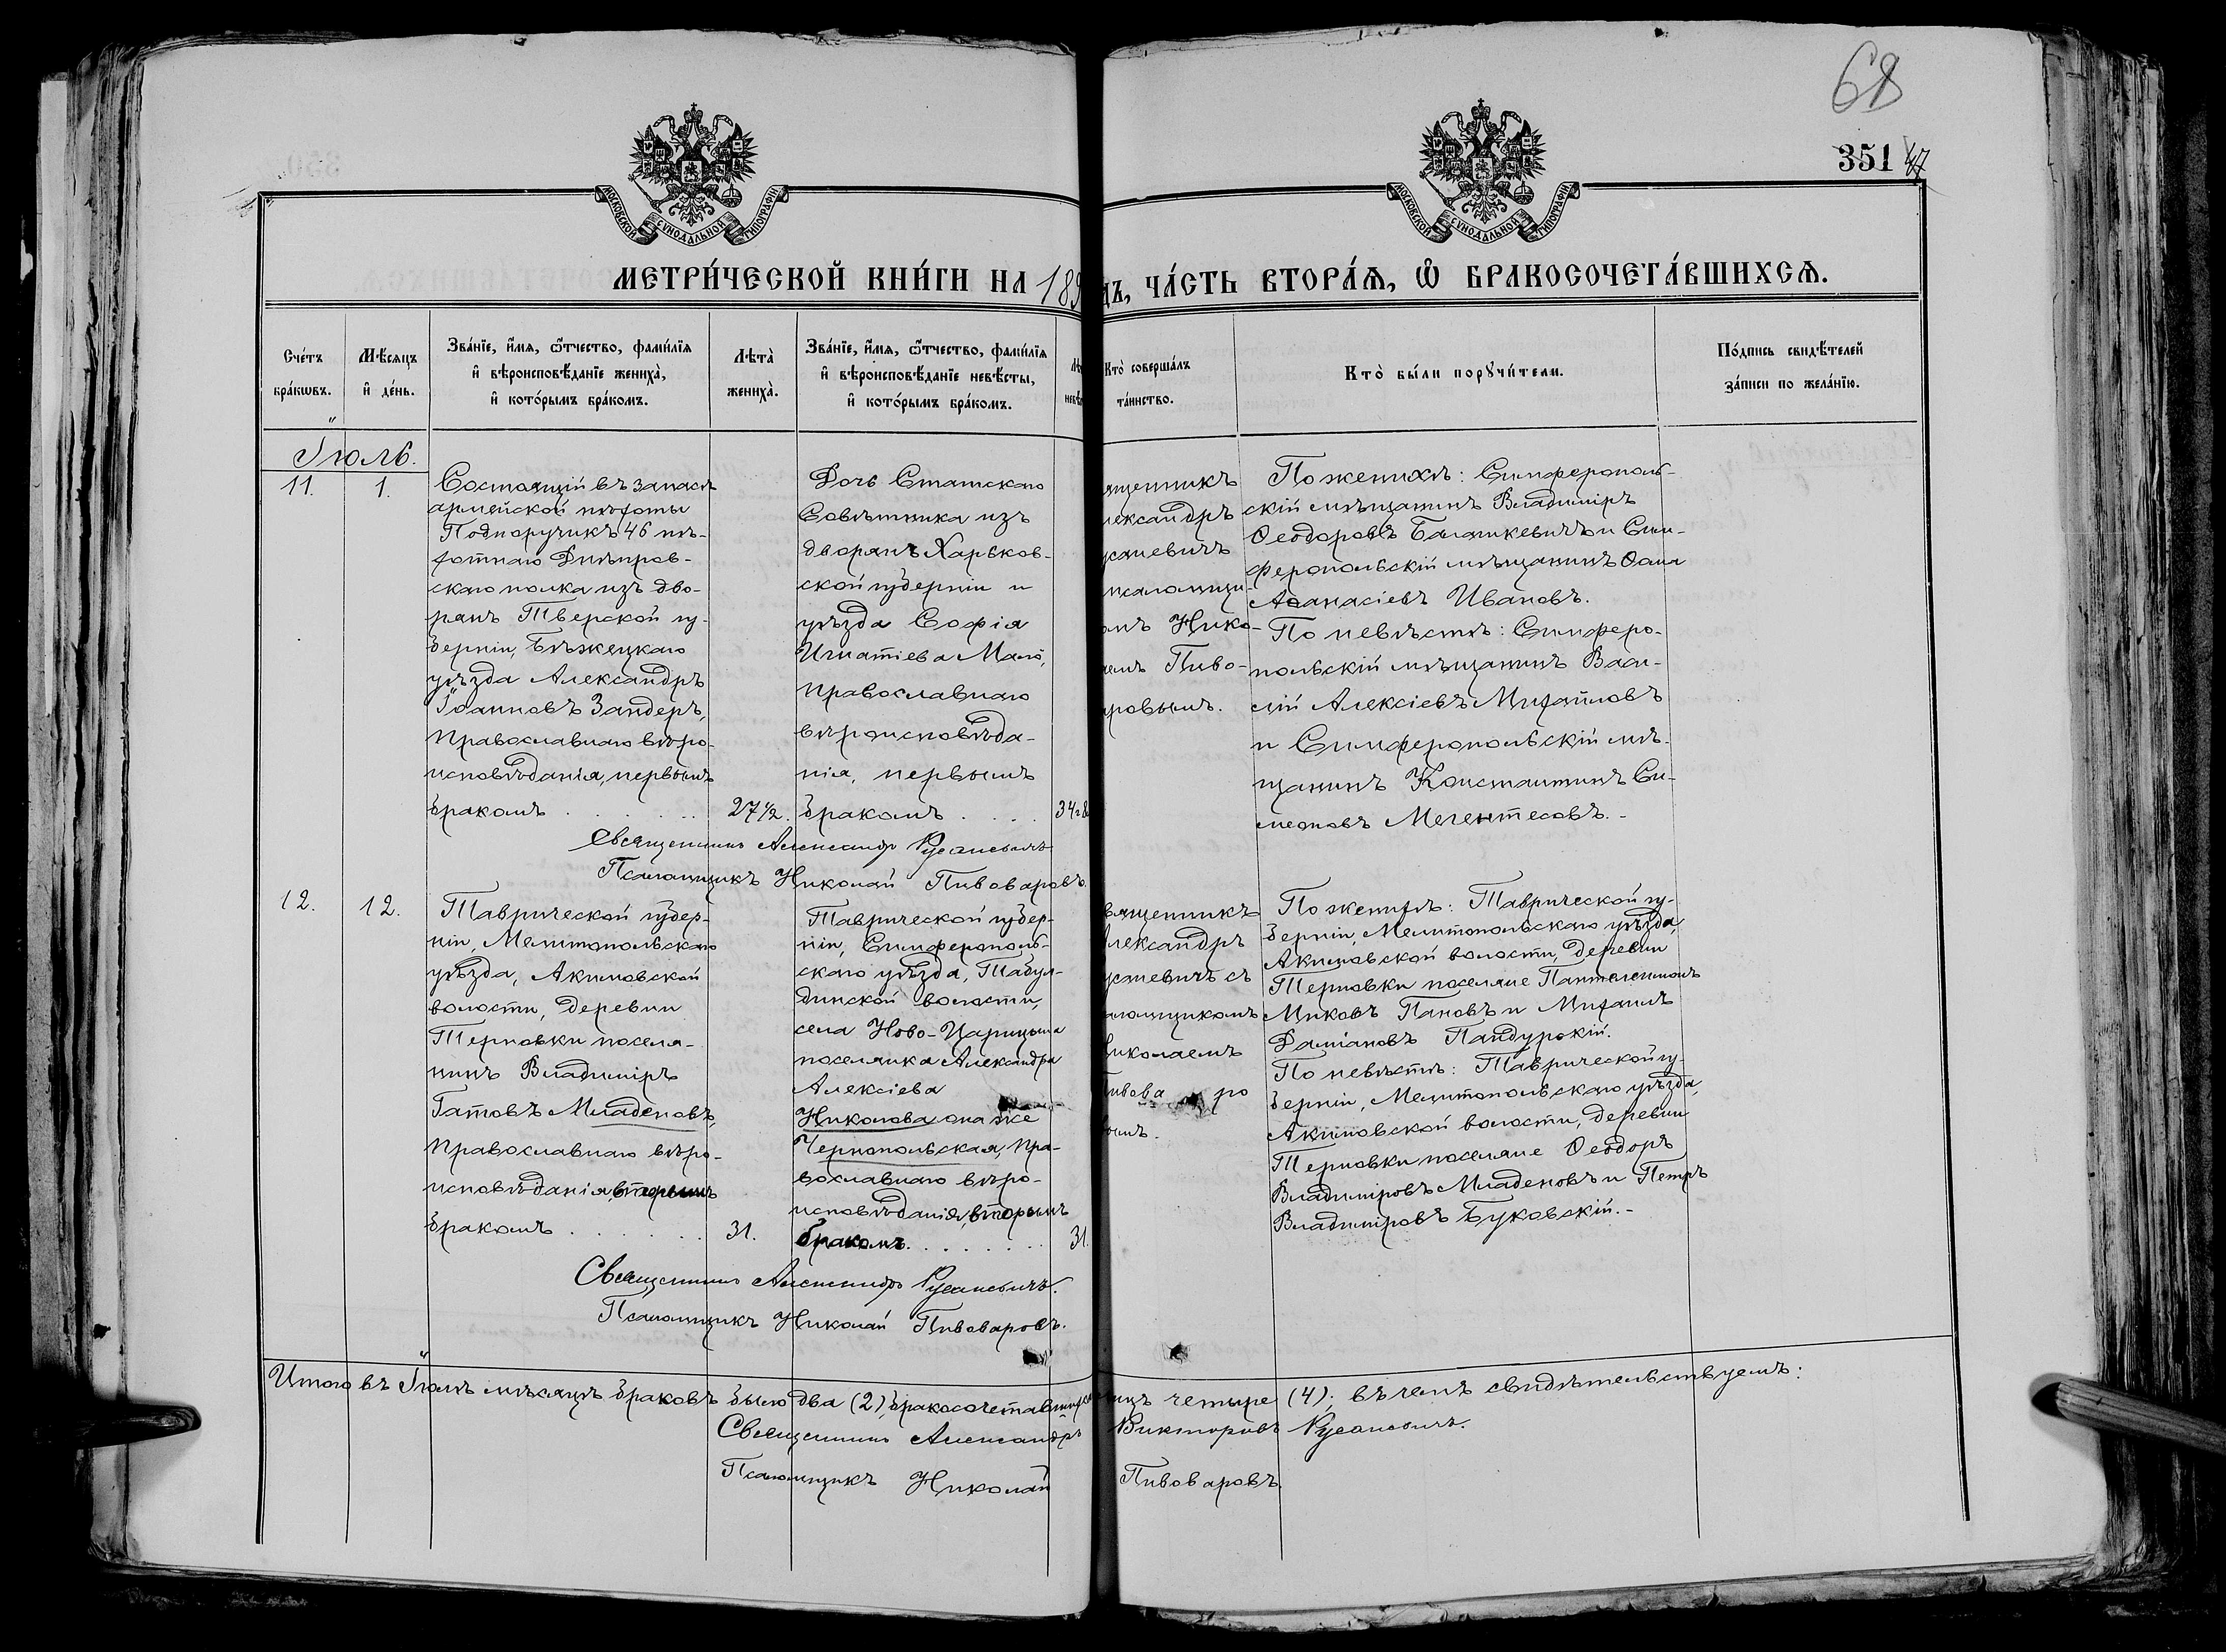 68
351 47
МОСКОВСКОЙ СѴНОДАЛЬНОЙ ТИПОГРАФІИ
МОСКОВСКОЙ СѴНОДАЛЬНОЙ ТИПОГРАФІИ
МЕТРИ́ЧЕСКОЙ КНИ́ГИ НА 189
ДЪ, ЧА́СТЬ ВТОРА́Ѧ, Ѽ БРАКОСОЧЕТА́ВШИХСѦ.
Сче́тъ
бра́кѡвъ.
Мѣ́сяцъ
и҆ де́нь.
Зва́нїе, и҆́мѧ, ѻ҆́тчество, фами́лїѧ
и҆ вѣроисповѣ́данїе жениха̀,
и҆ кото́рымъ бра́комъ.
Лѣта̀
жениха̀.
Зва́нїе, и҆́мѧ, ѻ҆́тчество, фами́лїѧ
и҆ вѣроисповѣ́данїе невѣ́сты,
и҆ кото́рымъ бра́комъ.
Лѣ
невѣ
Кто̀ соверша́лъ
та́инство.
Кто̀ бы́ли порꙋчи́тели.
По́дпись свидѣ́телей
за́писи по жела́нїю.
Іюль.
11.
1.
Состоящій въ запасѣ
армейской пѣхоты
Подпоручикъ 46 пѣ-
хотнаго Днѣпров-
скаго полка изъ дво-
рянъ Тверской гу-
берніи, Бѣжецкаго
уѣзда Александръ
Іоанновъ Зандеръ,
православнаго вѣро-
исповѣданія, первымъ
бракомъ
27 1/2.
Дочь Статскаго
Совѣтника изъ
дворянъ Харьков-
ской губерніи и
уѣзда Софія
Игнатіева Мало,
православнаго
вѣроисповѣда-
нія, первымъ
бракомъ
34
ященникъ
лександръ
саневичъ
псаломщи-
омъ Нико-
аемъ Пиво-
ровымъ.
По женихѣ: Симферополь-
скій мѣщанинъ Владиміръ
Ѳеодоровъ Балашкевичъ и Сим-
феропольскій мѣщанинъ Ѳома
Аѳанасіевъ Ивановъ.
По невѣстѣ: Симферо-
польскій мѣщанинъ Васи-
лій Алексіевъ Михайловъ
и Симферопольскій мѣ-
щанинъ Константинъ Си-
меоновъ Мегентесовъ.-
Священникъ Александръ Русаневичъ
Псаломщикъ Николай Пивоваровъ.
12.
12.
Таврической губер-
ніи, Мелитопольскаго
уѣзда, Акимовской
волости, деревни
Терновки поселя-
нинъ Владиміръ
Гатовъ Младеновъ,
православнаго вѣро-
исповѣданія, вторымъ
бракомъ
31.
Таврической губер-
ніи, Симферополь-
скаго уѣзда, Табул-
динской волости,
села Ново-Царицына
поселянка Александра
Алексіева
Николова она же
Чернопольская, пра-
вославнаго вѣро-
исповѣданія, вторымъ
бракомъ.
31.
вященникъ
лександръ
саневичъ съ
аломщикомъ
иколаемъ
Пивова ро
ымъ.
По женихѣ: Таврической гу-
берніи, Мелитопольскаго уѣзда,
Акимовской волости, деревни
Терновки поселяне Пантелеимонъ
Миковъ Пановъ и Михаилъ
Даміановъ Пандурскій.
По невѣстѣ: Таврической гу-
берніи, Мелитопольскаго уѣзда,
Акимовской волости, деревни
Терновки поселяне Ѳеодоръ
Владиміровъ Младеновъ и Петръ
Владиміровъ Буковскій.-
Священникъ Александръ Русаневичъ.
Псаломщикъ Николай Пивоваровъ.
Итого въ Іюлѣ мѣсяцѣ браковъ было два (2), бракосочетавшихся лицъ четыре (4); въ чемъ свидѣтельствуемъ:
Священникъ Александръ Викторовъ Русаневичъ.
Псаломщикъ Николай Пивоваровъ.